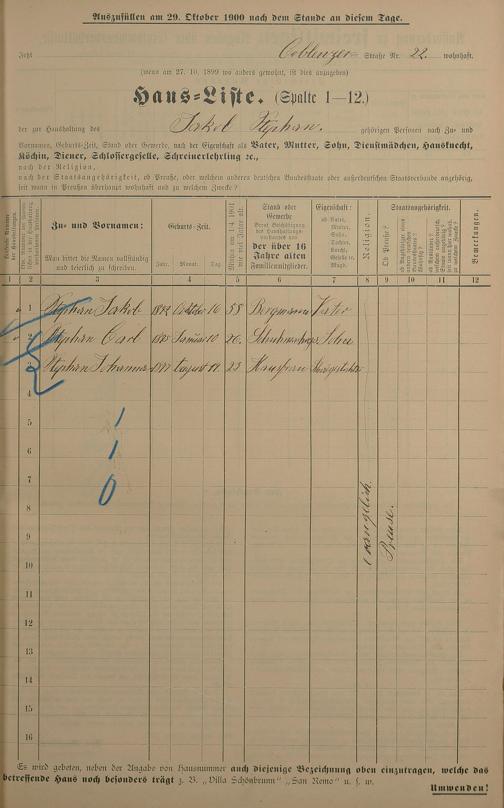 Auszufüllen am 29. Oktober 1900 nach dem Stande an diesem Tage.
Jetzt Coblenzer Straße Nr. 22. wohnhaft.
(wenn am 27. 10. 1899 wo anders gewohnt, ist dies anzugeben)
Haus-Liste. (Spalte 1—12.)
der zur Haushaltung des Jakob Stephan. gehörigen Personen nach Zu- und
Vornamen, Geburts-Zeit, Stand oder Gewerbe, nach der Eigenschaft als Vater, Mutter, Sohn, Dienstmädchen, Hausknecht,
Köchin, Diener, Schlossergeselle, Schreinerlehrling ꝛc.,
nach der Religion,
nach der Staatsangehörigkeit, ob Preuße, oder welchem anderen deutschen Bundesstaate oder außerdeutschen Staatsverbande angehörig,
seit wann in Preußen überhaupt wohnhaft und zu welchem Zwecke?
Zu- und Vornamen:
Man bittet die Namen vollständig und leserlich zu schreiben.
Geburts-Zeit.
Jahr. Monat. Tag.
Stand oder Gewerbe
der über 16 Jahre alten Familienmitglieder.
Eigenschaft:
ob Vater, Mutter, Sohn, Tochter, Knecht, Geselle ꝛc. Magd.
Religion.
Staatsangehörigkeit.
Ob Preuße?
Bemerkungen.
1 2 3 4 5 6 7 8 9 10 11 12
1 Stephan Jakob 1842 Oktober 16 58 Bergmann Vater
2 Stephan Carl Januar 10 Sohn
3 Stephan Johanna August 23 Hausfrau
4
5
6
7
8
9
10
11
12
13
14
15
16
1
1
0
evangelisch
Preuse.
Es wird gebeten, neben der Angabe von Hausnummer auch diejenige Bezeichnung oben einzutragen, welche das
betreffende Haus noch besonders trägt z. B. „Villa Schönbrunn" „San Remo" u. s. w.
Umwenden!